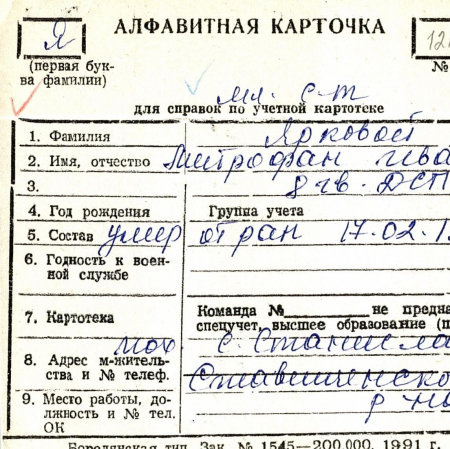 Я АЛФАВИТНАЯ КАРТОЧКА 12
(первая бук-
ва фамилии) №
мл. с-т
для справок по учетной картотеке
1. Фамилия Ярковой
2. Имя, отчество Митрофан Ива
3. 8 гв. ДСП
4. Год рождения Группа учета
5. Состав умер от ран 17.02.1
6. Годность к воен-
ной службе
7. Картотека Команда № не предна
спецучет, высшее образование (п
8. Адрес м-житель- с. Станисла
ства и № телеф. Ставищенско
9. Место работы, до- р-на
лжность и № тел.
ОК
Бородянская тип. Зак. № 1545—200.000. 1991 г.